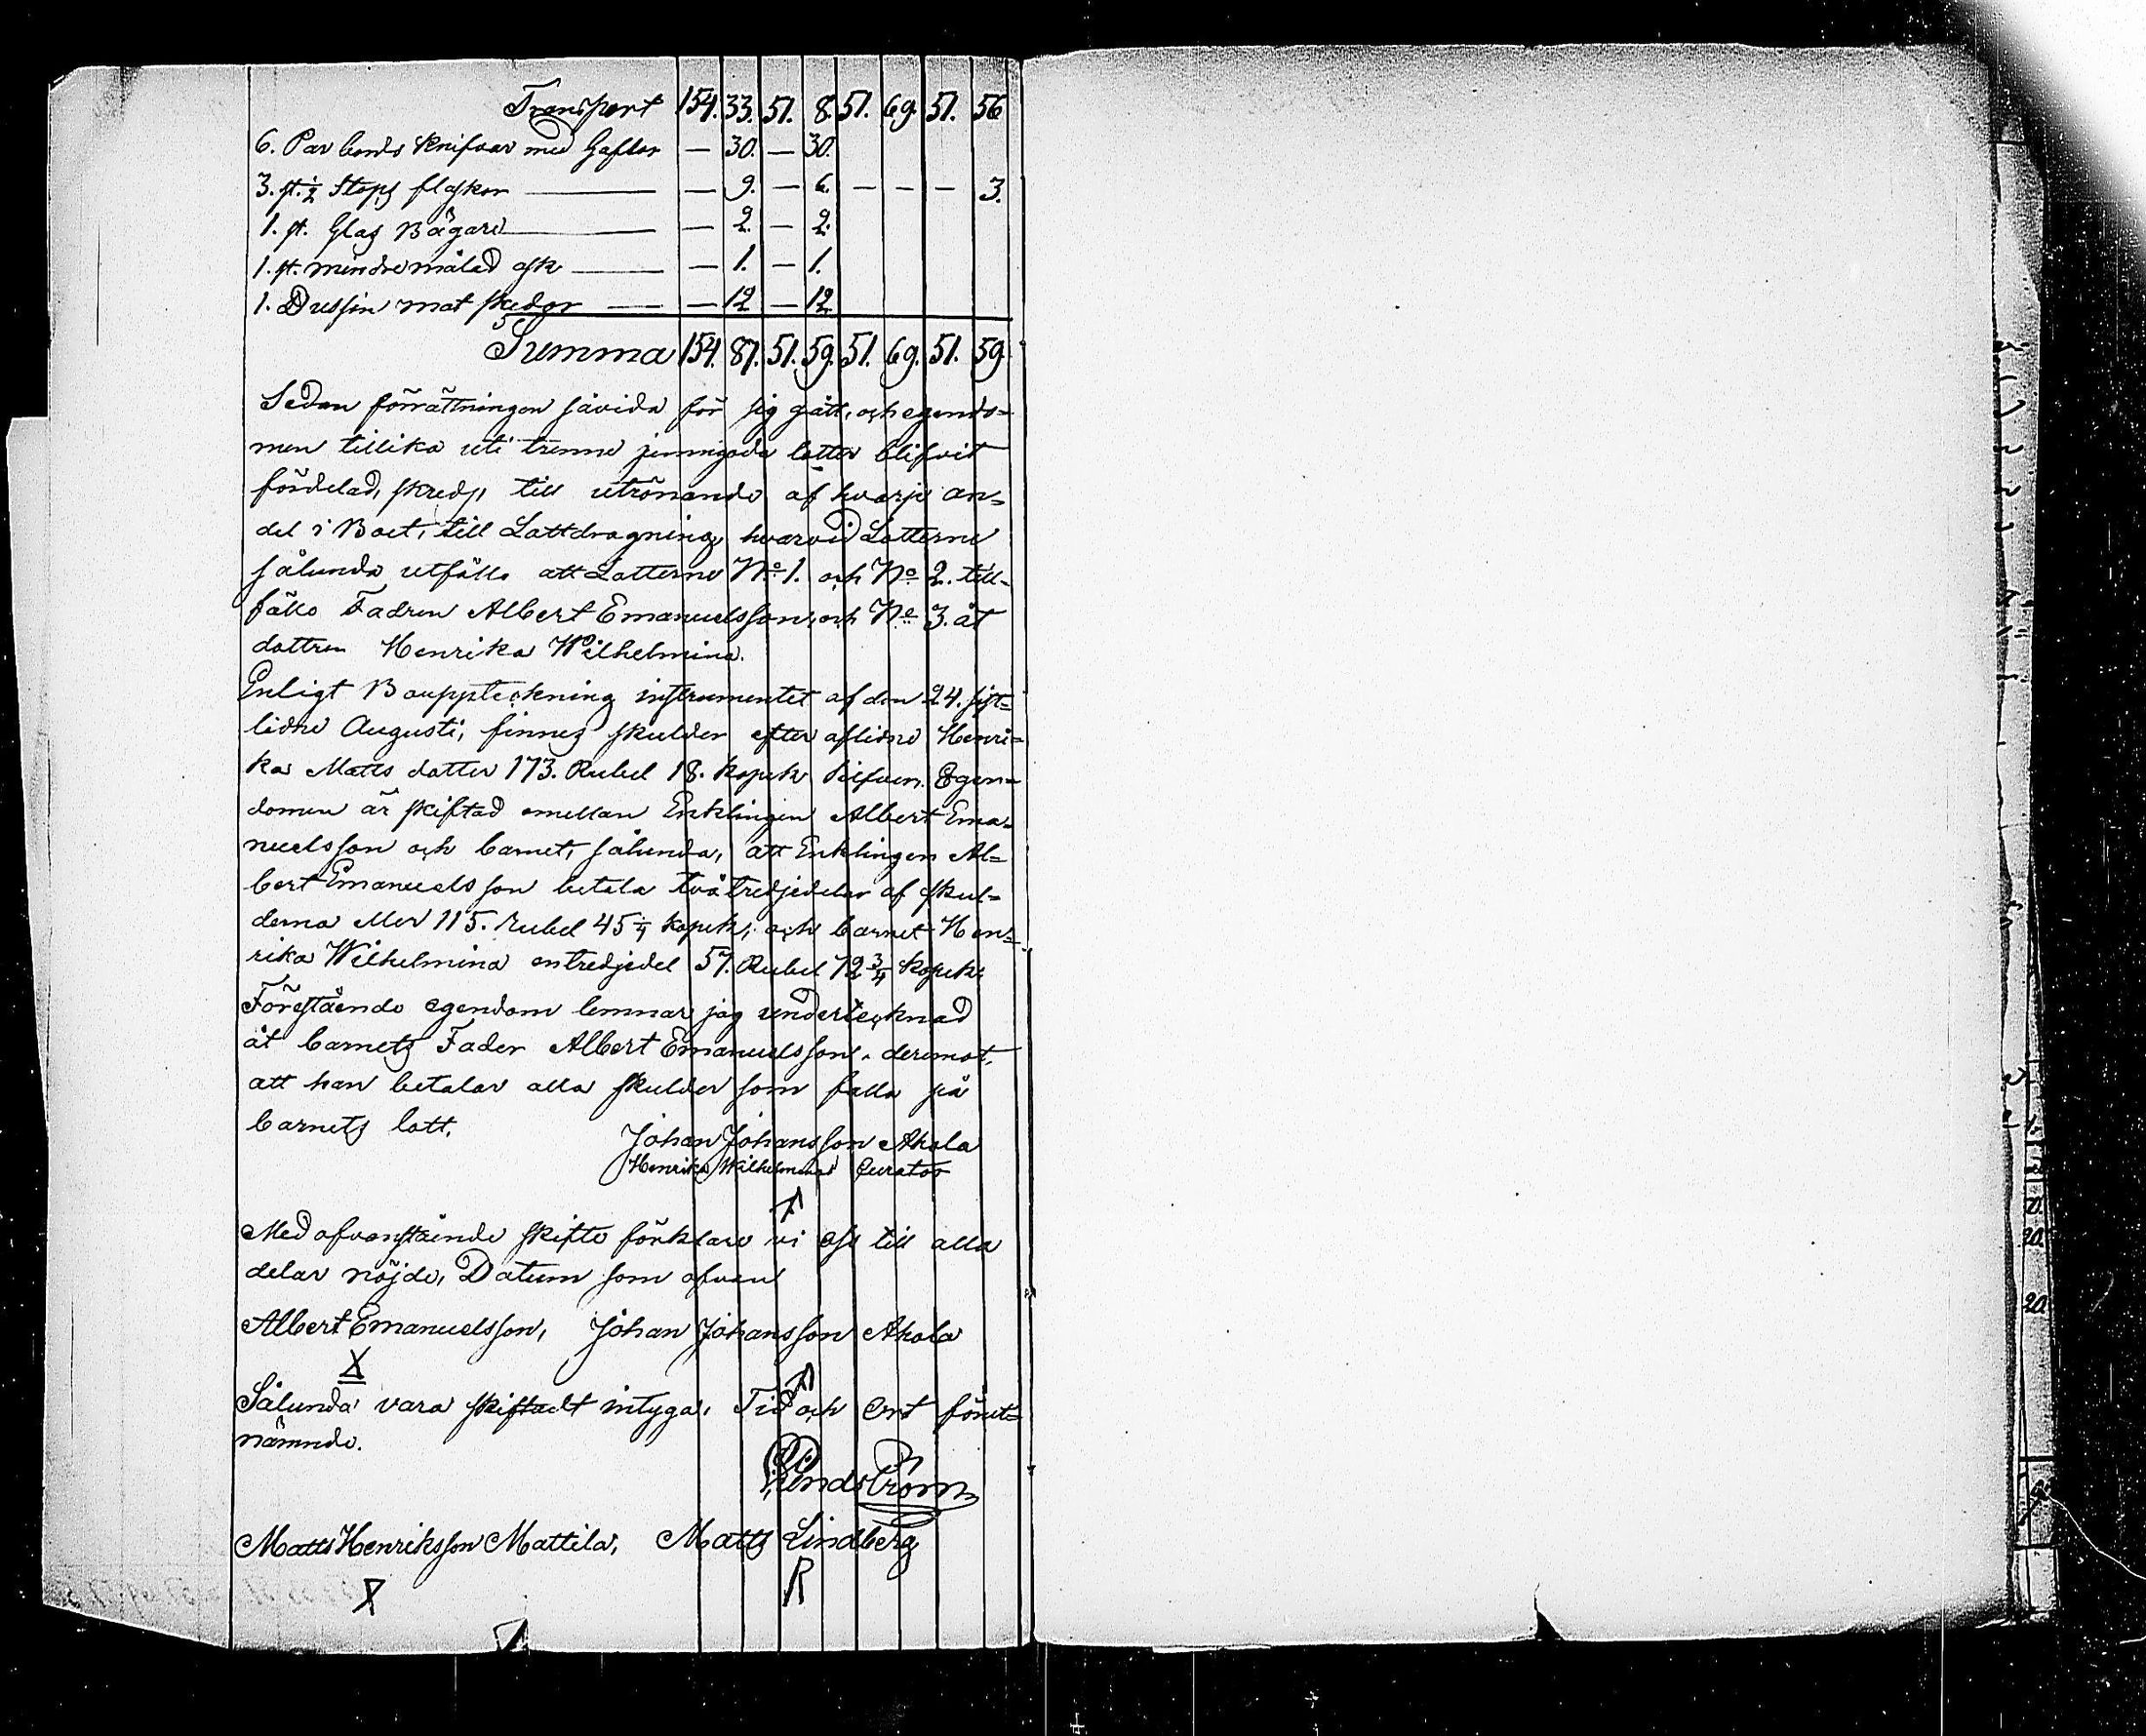 Transport 154. 33. 51. 8. 51. 69. 51. 56
6. Par bords Knifvar med Gaflar — 30. — 30.
3. st. ½ Stops flaskor — — 9. — 6. — — — 3.
1. st. Glas Bägare — — 2. — 2.
1. st. mindre målad ask — — 1. — 1.
1. Dussin mat skedor — — 12 — 12
Summa 154. 87. 51. 59. 51. 69. 51. 59.
Sedan förrättningen såvida för sig gått, och egendo=
men tillika uti trenne jemngoda lotter blifvit
fördelad, skreds, till utrönande af hvarje an=
del i Boet, till Lottdragning, hvarvid Lotterne
sålunda utfölls att Lotterne No 1. och No 2. till=
fälls Fadren Albert Emanuelsson, och No 3. åt
dottren Henrika Wilhelmina.
Enligt Bouppteckning instrumentet af den 24. sist=
lidne Augusti, finnes skulder efter aflidne Henri=
ka Matts dotter 173. Rubel 18. kopek Silfver. Egen=
domen är skiftad emellan Enklingen Albert Ema=
nuelsson och barnet, sålunda, att Enklingen Al=
bert Emanuelsson betala två tredjedelar af skul=
derna eller 115. rubel 45 ¼ kopek, och barnet Hen=
rika Wilhelmina en tredjedel 57. Rubel 72 ¾ kopek.
Förestående egendom lemnar jag undertecknad
åt barnets Fader Albert Emanuelsson, deremot,
att han betalar alla skulder som falla på
barnets lott.
Johan Johansson Ahola
Henrika Wilhelminas Curator
Med ofvanstående skifte förklare vi oss till alla
delar nöjde, Datum som ofvan
Albert Emanuelsson, Johan Johansson Ahola
X
Sålunda vara skiftadt intyga, Tid och Ort förut=
nämnde.
Lindström
Matts Henriksson Mattila, Matts Lindberg
R